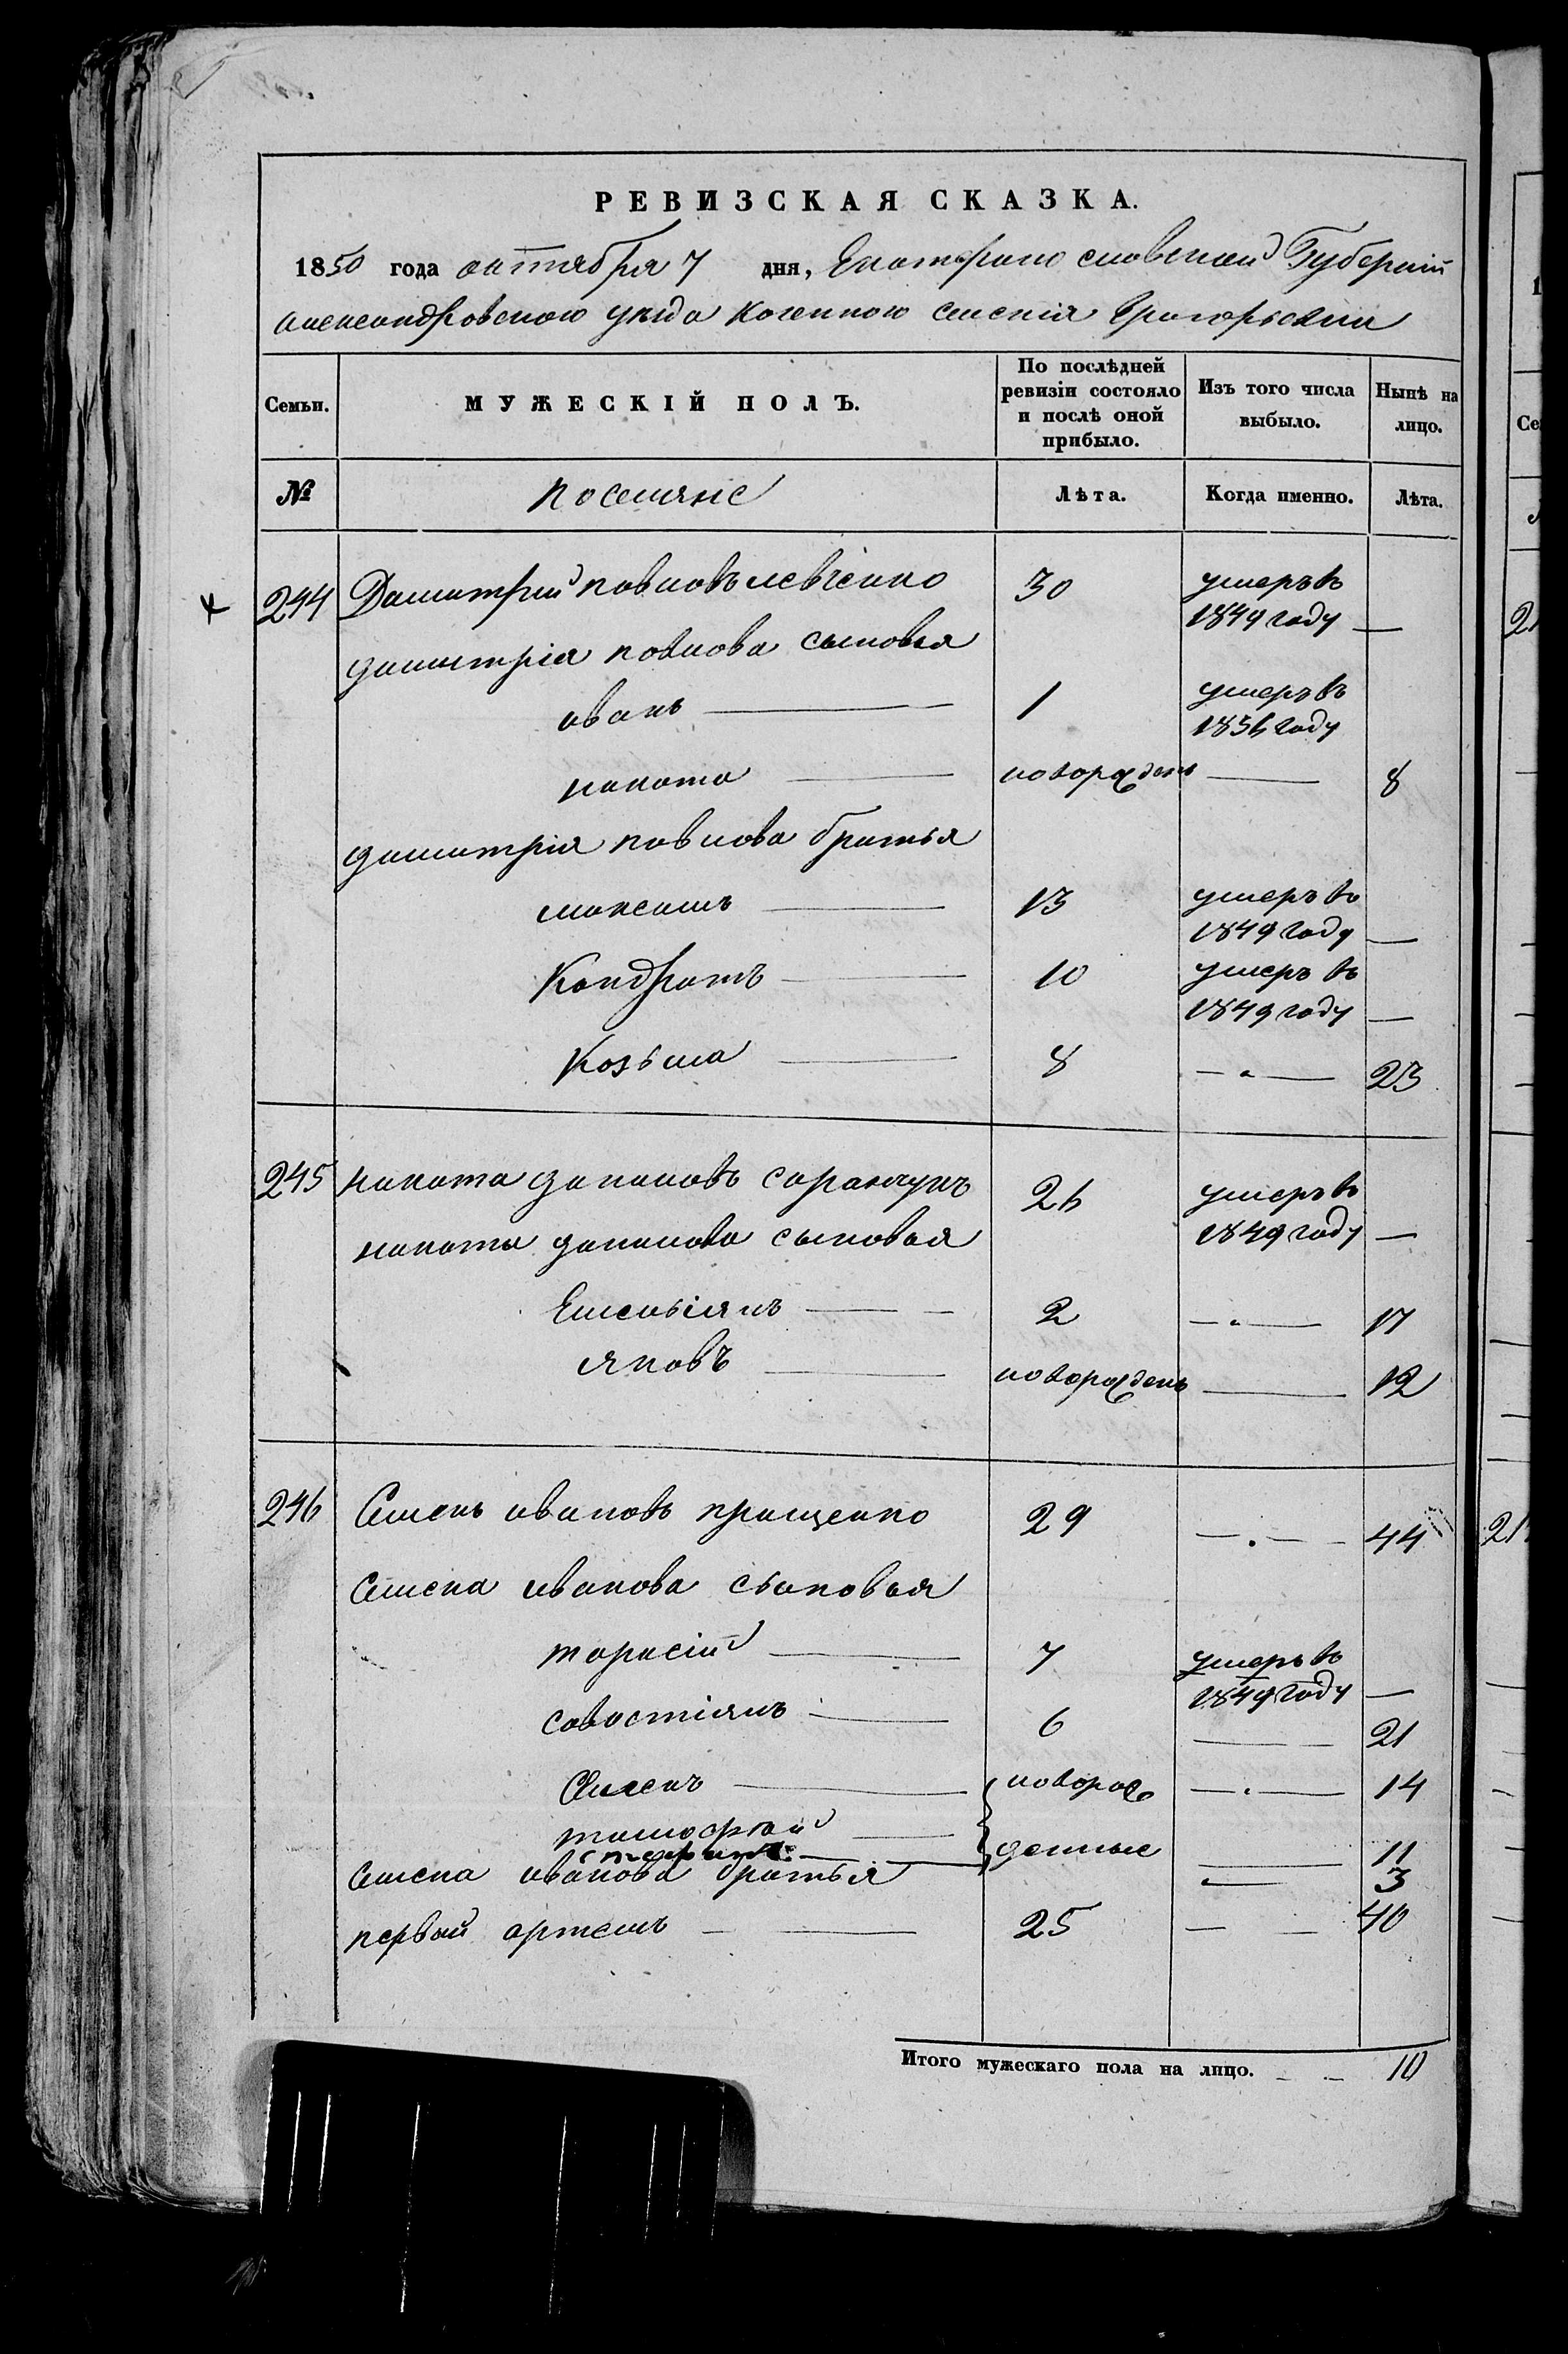 РЕВИЗСКАЯ СКАЗКА.
1850 года октября 7 дня, Екатерино славской Губерніи
Александровского уезда Козенного селенія Григорьевки
Семьи. МУЖЕСКІЙ ПОЛЪ. По послѣдней ревизіи состояло и послѣ оной прибыло. Изъ того числа выбыло. Нынѣ на лицо.
№ поселяне Лѣта. Когда именно. Лѣта.
244 Димитрий повловъ левченко 30 умеръ въ 1849 году —
димитрія повлова сыновья
иванъ — 1 умеръ въ 1836 году
никита — новорожденъ — 8
димитрія повлова братья
максимъ — 13 умеръ въ 1849 году —
Кондратъ — 10 умеръ въ 1849 году —
Козьма — 8 — 23
245 никита даниловъ саранчукъ 26 умеръ въ 1849 году —
никиты данилова сыновья
Емельіянъ — 2 — 17
яковъ — новорожденъ — 12
246 Семенъ ивановъ прищенко 29 — 44
Семена иванова сыновья
тарасій — 7 умеръ въ 1849 году —
савостіянъ — 6 — 21
Семенъ — новорож — 14
тимофей — денные — 11
— 3
Семена иванова братья
первый артемъ — 25 — 40
Итого мужескаго пола на лицо. 10